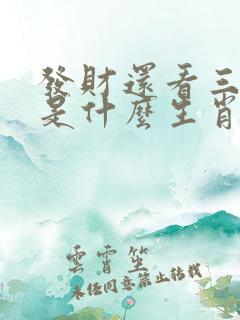 發財還看三
是什麼生肖
雲霄筮
未任同意禁止转载